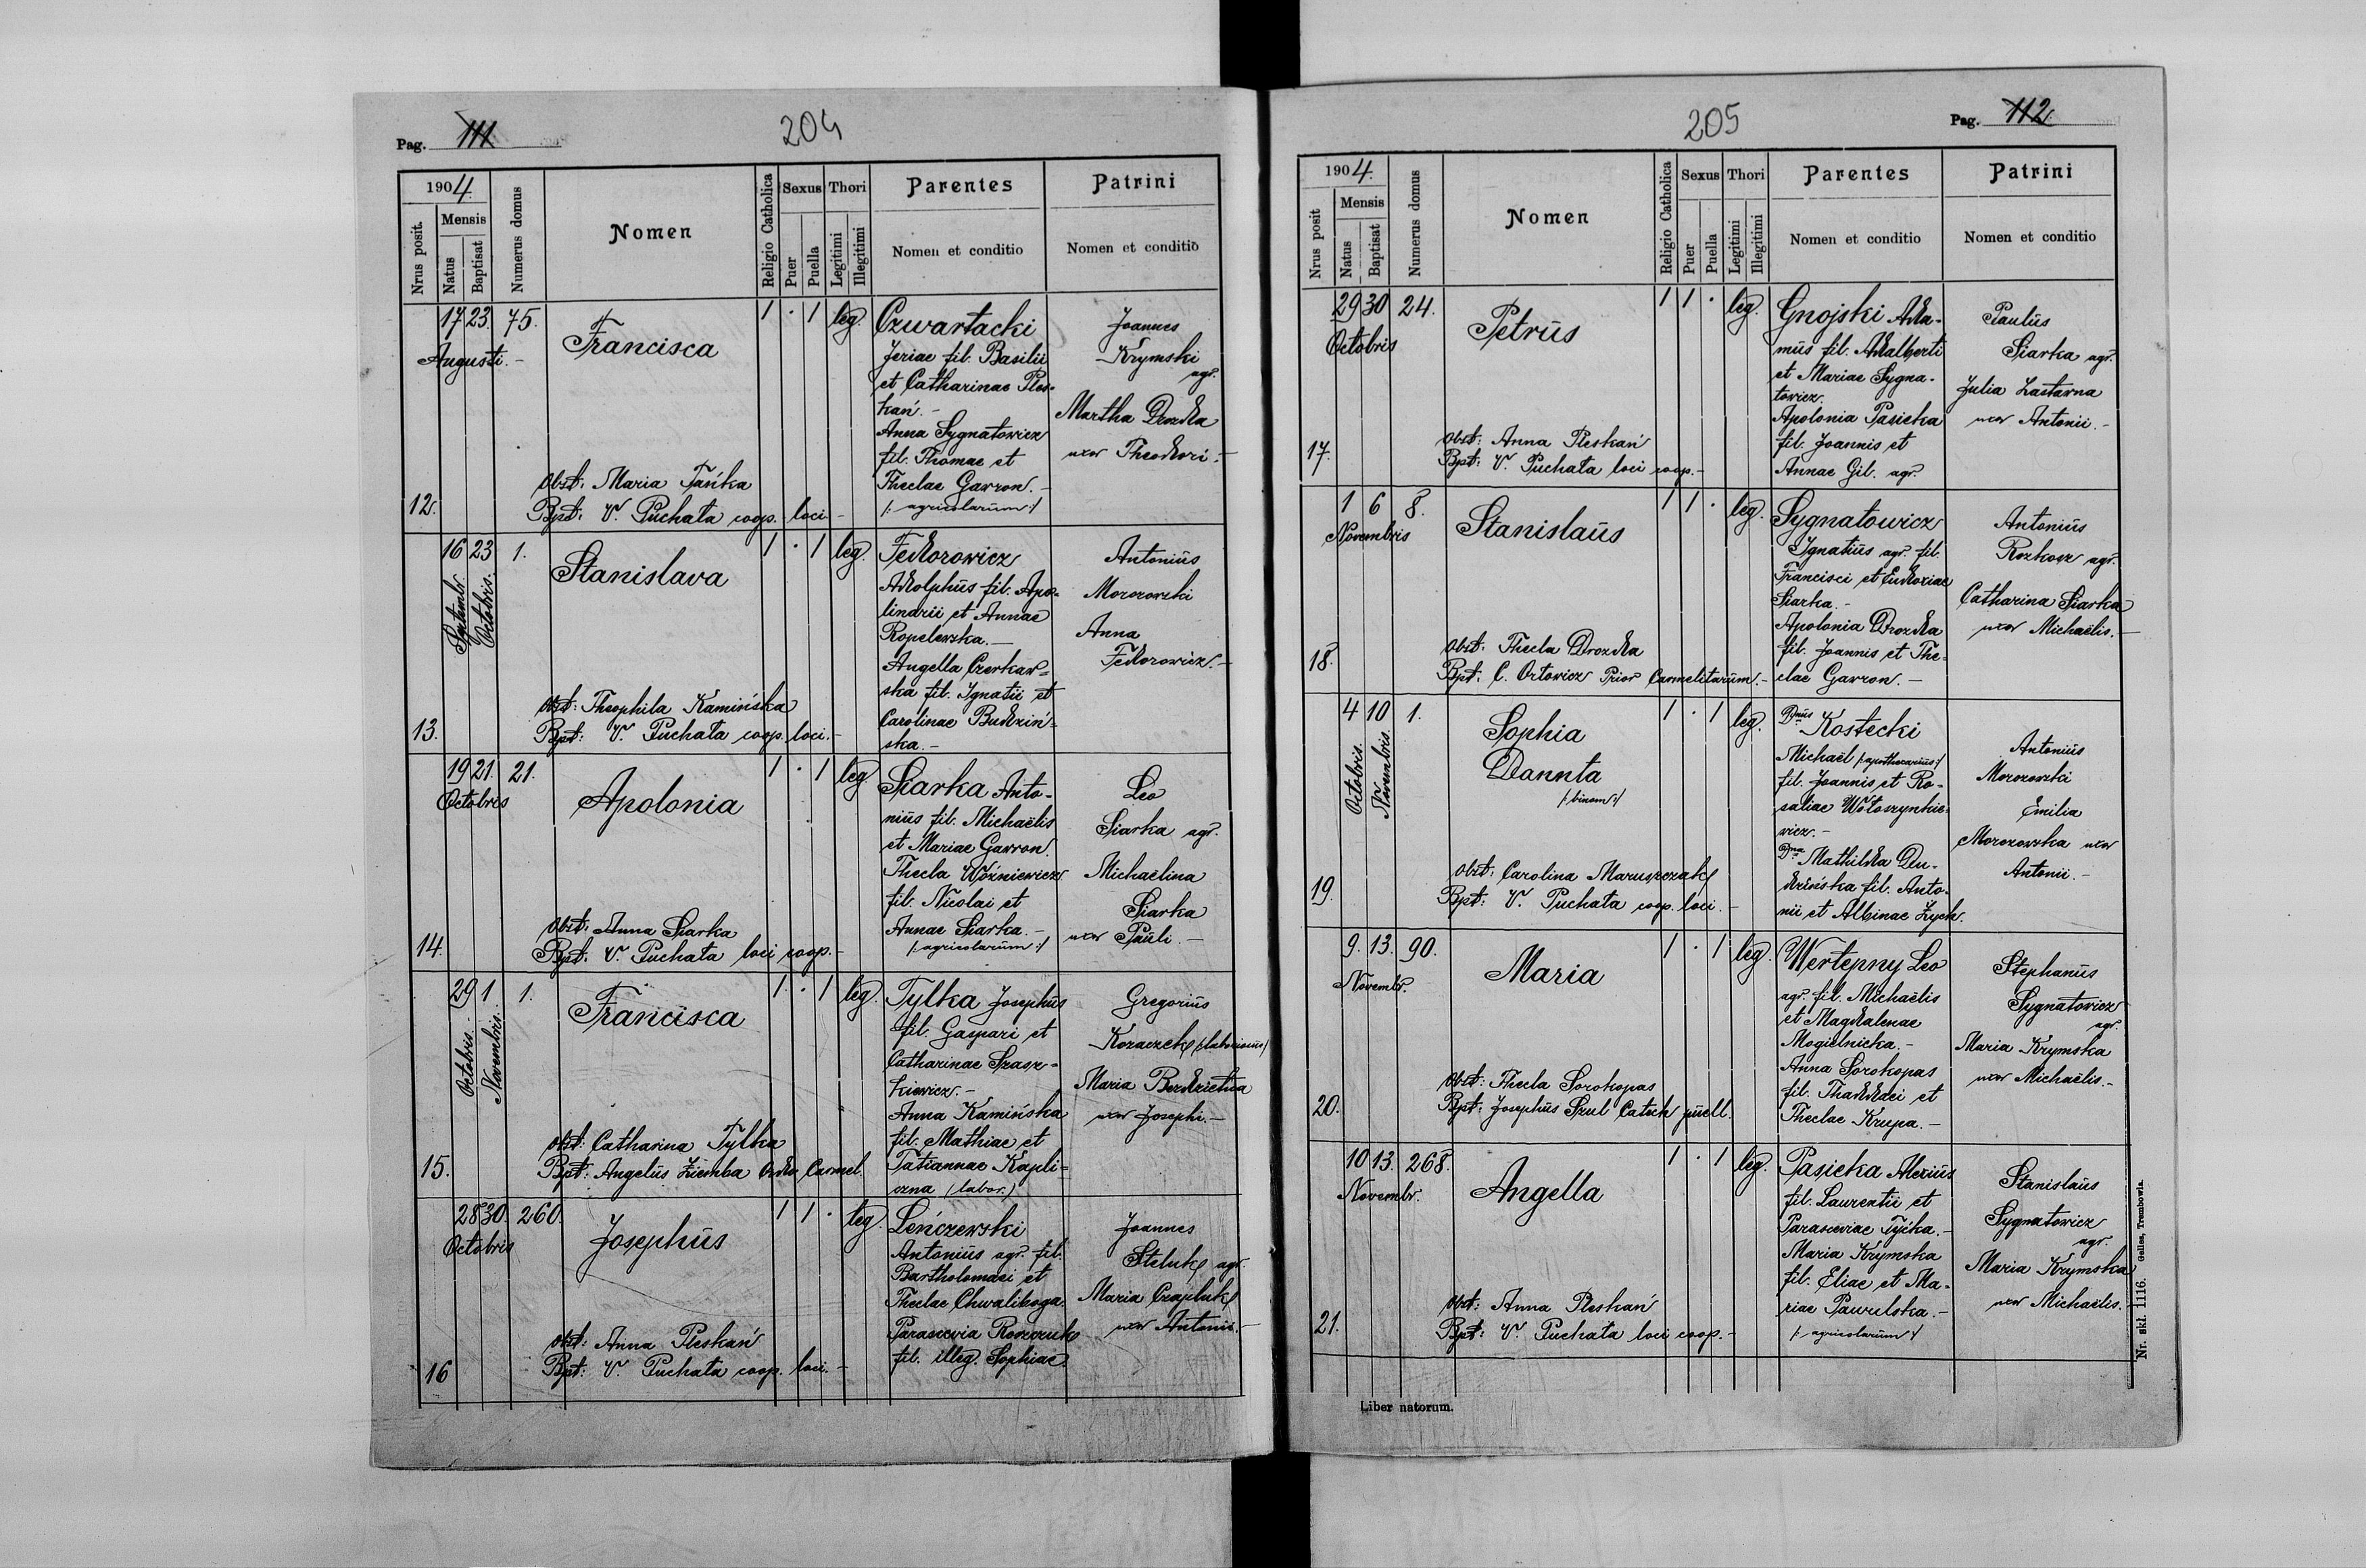 Pag. 111
204
1904.
Nrus posit.
Mensis
Natus
Baptisat
Numerus domus
Nomen
Religio Catholica
Sexus
Puer
Puella
Thori
Legitimi
Illegitimi
Parentes
Nomen et conditio
Patrini
Nomen et conditio
12.
17 23. 75.
Augusti. -
Francisca
Obst: Maria Tańka
Bpt: V. Puchata coop. loci -
1 · 1 leg.
Czwartacki
Jeriae fil. Basilii
et Catharinae Ples-
kań. -
Anna Sygnatowicz
fil. Thomae et
Theclae Gawron. -
/: agricolarum :/
Joannes
Krymski
agr.
Martha Drozda
uxor Theodori. -
13.
16 23 1.
Septembr.
Octobris.
Stanislava
Obst: Theophila Kamińska
Bpt: V. Puchata coop. loci. -
1 · 1 leg.
Fedorowicz
Adolphus fil. Apo-
linarii et Annae
Ropelewska. -
Angella Czerkaw=
ska fil. Ignatii et
Carolinae Budziń=
ska. -
Antonius
Morozowski
Anna
Fedorowicz. -
14.
19 21. 21.
Octobris
Apolonia
Obst: Anna Siarka
Bpt: V. Puchata loci coop. -
1 · 1 leg
Siarka Anto-
nius fil. Michaëlis
et Mariae Gawron.
Thecla Woźniewicz
fil. Nicolai et
Annae Siarka. -
/: agricolarum :/
Leo
Siarka agr.
Michaëlina
Siarka
uxor Pauli. -
15.
29 1 1.
Octobris.
Novembris.
Francisca
Obst: Catharina Tylka
Bpt: Angelus Ziemba Ordo Carmel.
1 · 1 leg.
Tylka Josephus
fil. Gaspari et
Catharinae Szasz=
kiewicz. -
Anna Kamińska
fil. Mathiae et
Tatiannae Kapli=
czna (labor.)
Gregorius
Kozaczek
Maria
uxor Josephi. -
16
28 30. 260.
Octobris
Josephus
Obst: Anna Pleskań
Bpt: V. Puchata coop. loci. -
1 1 · leg.
Leńczewski
Antonius agr. fil.
Bartholomaei et
Theclae Chwaliboga.
Parascevia Roszczuk
fil. illeg. Sophiae.
Joannes
Steluk agr.
Maria Czapluk
uxor Antonii. -
205
Pag. 112.
1904.
Nrus posit
Mensis
Natus
Baptisat
Numerus domus
Nomen
Religio Catholica
Sexus
Puer
Puella
Thori
Legitimi
Illegitimi
Parentes
Nomen et conditio
Patrini
Nomen et conditio
17.
29 30 24.
Octobris
Petrus
Obst: Anna Pleskań
Bpt: V. Puchata loci coop. -
1 1 · leg.
Gnojski Ada-
mus fil. Adalberti
et Mariae Sygna-
towicz.
Apolonia Pasieka
fil. Joannis et
Annae Gil. agr.
Paulus
Siarka agr.
Julia Zastawna
uxor Antonii. -
18.
1 6 8.
Novembris
Stanislaus
Obst: Thecla Drozda
Bpt: C. Ortowicz Prior Carmelitarum. -
1 1 · leg.
Sygnatowicz
Ignatius agr. fil.
Francisci et Eudoxiae
Siarka. -
Apolonia Drozda
fil. Joannis et The-
clae Gawron. -
Antonius
Rozkosz agr.
Catharina Siarka
uxor Michaëlis. -
19.
4 10 1.
Octobris.
Novembris.
Sophia
Dannta
/: binom :/
Obst: Carolina Maruszczak
Bpt: V. Puchata coop. loci. -
1 · 1 leg.
Dnus Kostecki
Michaël /: apothecarius :/
fil. Joannis et Ro-
saliae Wołoszynkie-
wicz. -
Dna Mathilda Den-
dzińska fil. Anto-
nii et Albinae Zych.
Antonius
Morozowski
Emilia
Morozowska uxor
Antonii. -
20.
9. 13. 90.
Novembr.
Maria
Obst: Thecla Sorokopas
Bpt: Josephus Szul Catech puell.
1 · 1 leg.
Wertepny Leo
agr. fil. Michaëlis
et Magdalenae
Mogielnicka. -
Anna Sorokopas
fil. Thaddaei et
Theclae Krupa. -
Stephanus
Sygnatowicz
agr.
Maria Krymska
uxor Michaëlis. -
21.
10 13. 268.
Novembr.
Angella
Obst: Anna Pleskań
Bpt: V. Puchata loci coop. -
1 · 1 leg.
Pasieka Alexius
fil. Laurentii et
Parasceviae Tyćka. -
Maria Krymska
fil. Eliae et Ma-
riae Pawulska. -
/: agricolarum :/
Stanislaus
Sygnatowicz
agr.
Maria Krymska
uxor Michaëlis.
Liber natorum.
Nr. skł. 1116. Galles, Trembowla.